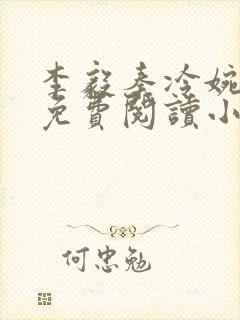 李毅秦冷婉
免費閱讀小
何忠勉